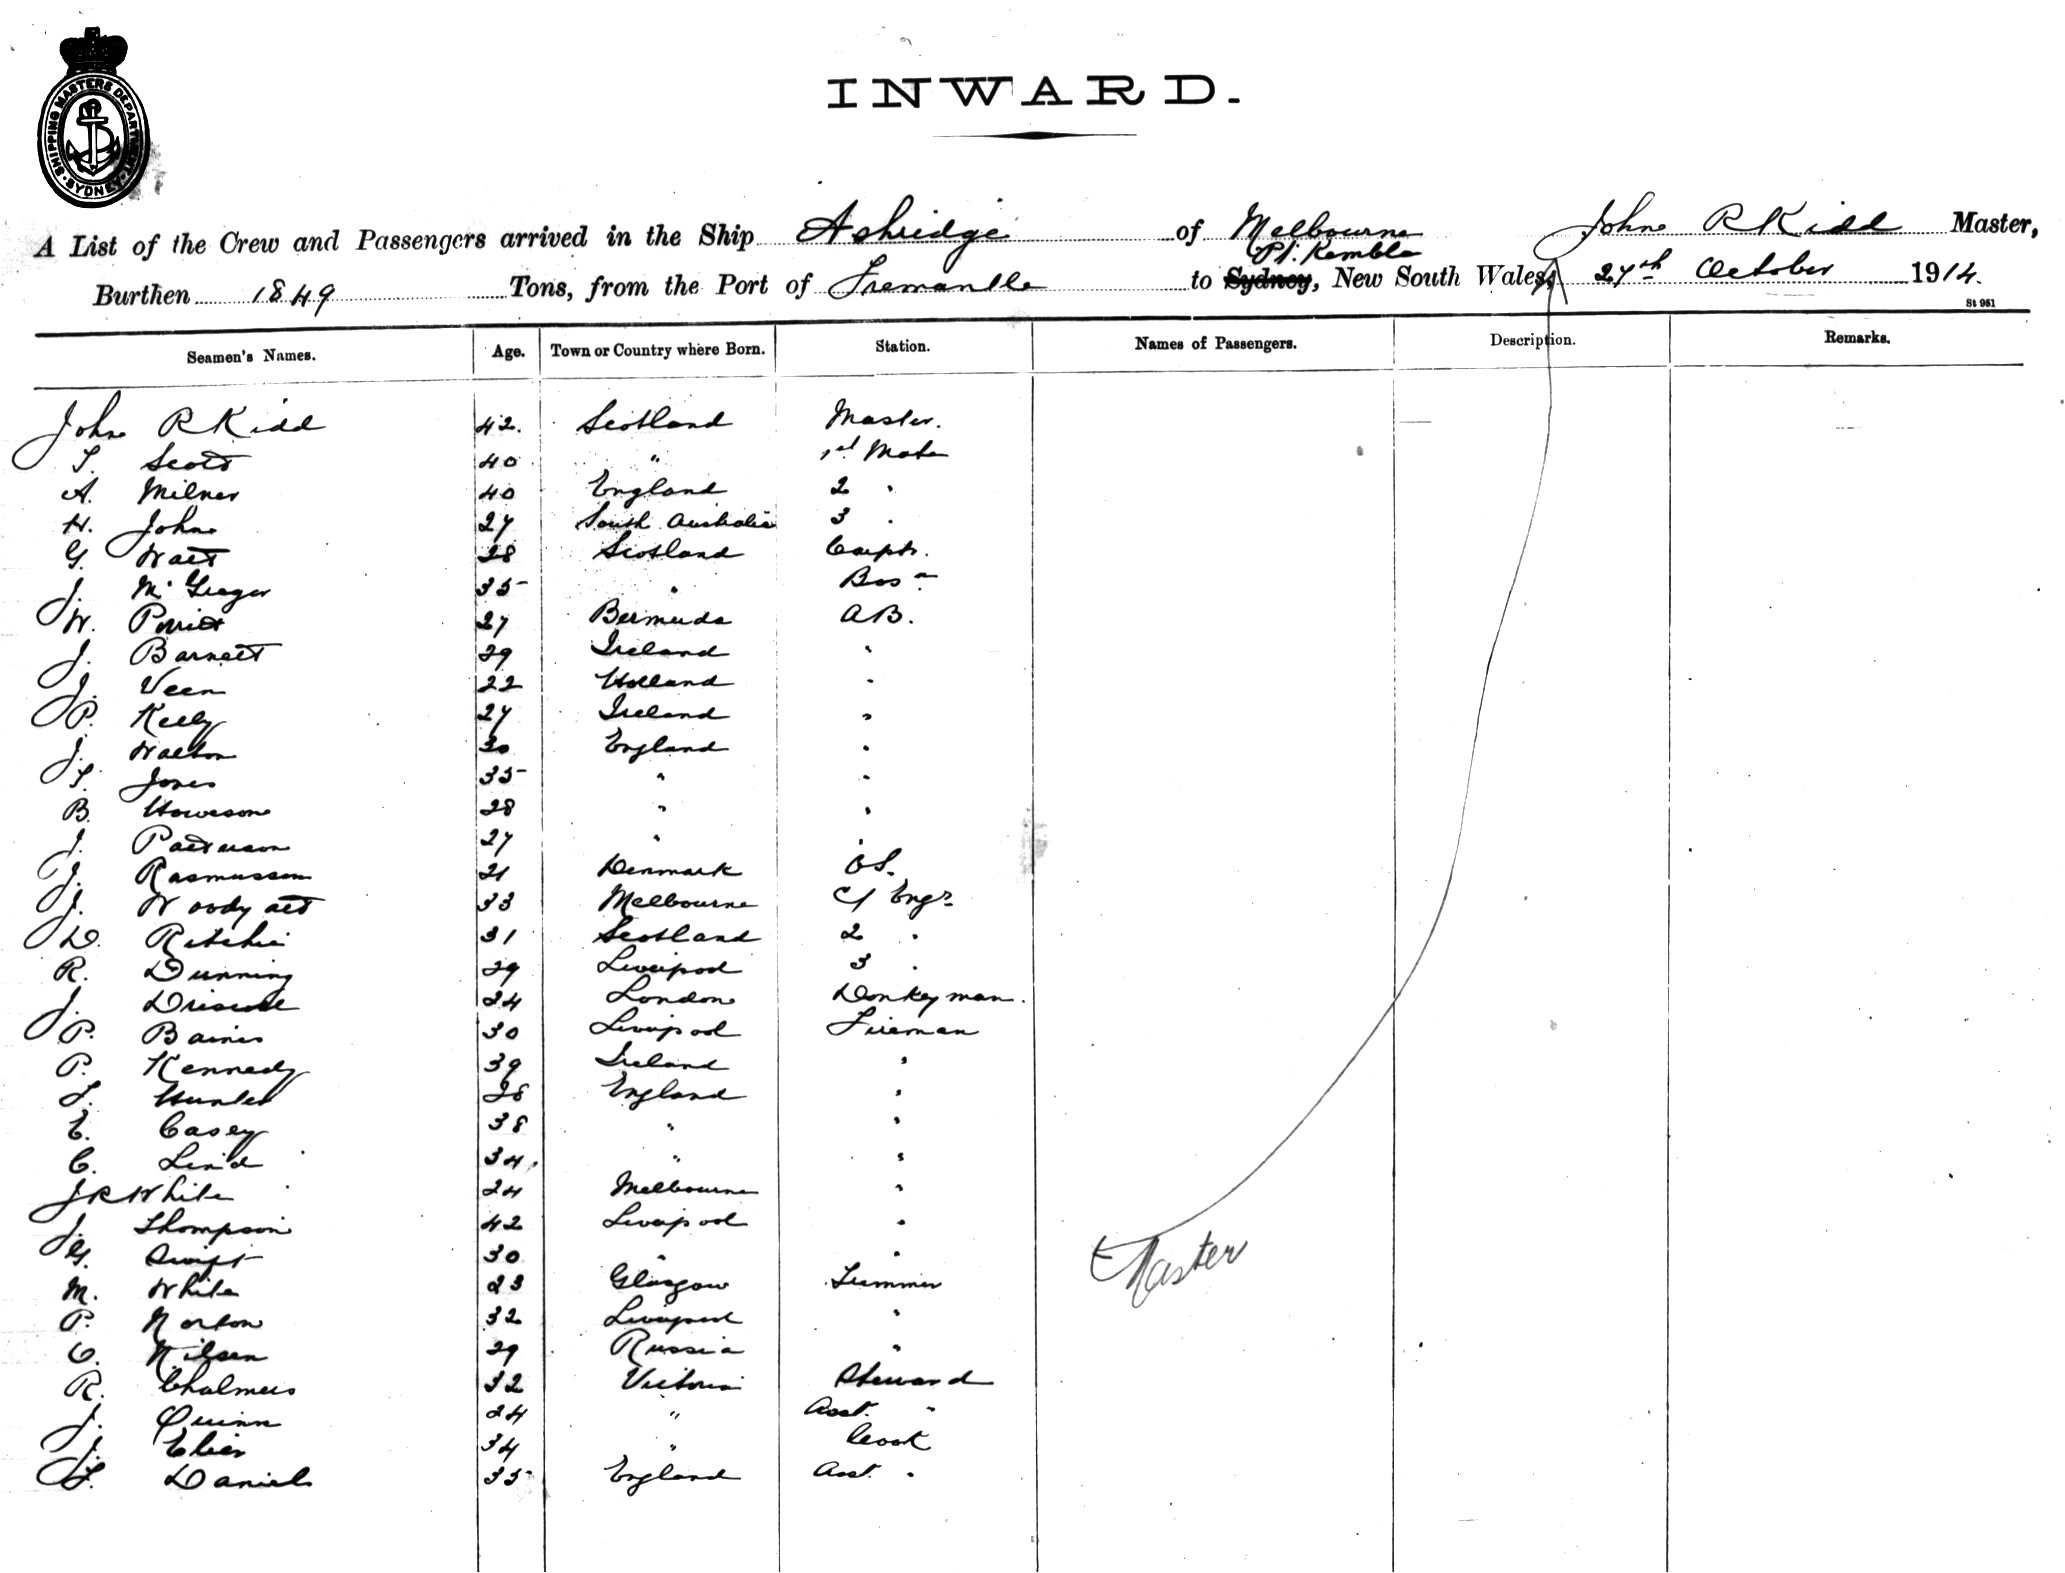 SHIPPING MASTERS DEPARTMENT
SYDNEY
INWARD.
A List of the Crew and Passengers arrived in the Ship Ashridge of Melbourne John R Kidd Master,
Pt. Kembla
Burthen 1849 Tons, from the Port of Fremantle to Sydney, New South Wales, 27th October 1914.
St 961
Seamen's Names. Age. Town or Country where Born. Station. Names of Passengers. Description. Remarks.
John R Kidd 42. Scotland Master.
T. Scott 40 " 1st Mate
A. Milner 40 England 2 "
H. John 27 South Australia 3 "
G. Watt 28 Scotland Carptr.
J. McGregor 35 " Bosn
W. 27 Bermuda AB.
J. Barnett 29 Ireland "
J. Veen 22 Holland "
P. Kelly 27 Ireland "
J. Walton 30 England "
T. Jones 35 " "
B. Howeson 28 " "
J. Patterson 27 " "
J. Rasmussen 21 Denmark OS.
J. Woodyatt 33 Melbourne C/ Engr.
D. Ritchie 31 Scotland 2 "
R. Dunning 29 Liverpool 3 "
J. Driscoll 24 London Donkeyman.
P. Baines 30 Liverpool Fireman
P. Kennedy 39 Ireland "
T. Hunter 28 England "
E. Casey 38 " "
C. Lind 34 " "
J R White 24 Melbourne "
J. Thompson 42 Liverpool "
G. Swift 30 " "
M. White 23 Glasgow Trimmer
P. Norton 32 Liverpool "
O. Nilsen 29 Russia "
R. Chalmers 32 Victoria Steward
J. Quinn 24 " Asst. "
J. 34 " Cook
F. Daniels 35 England Asst. "
Master